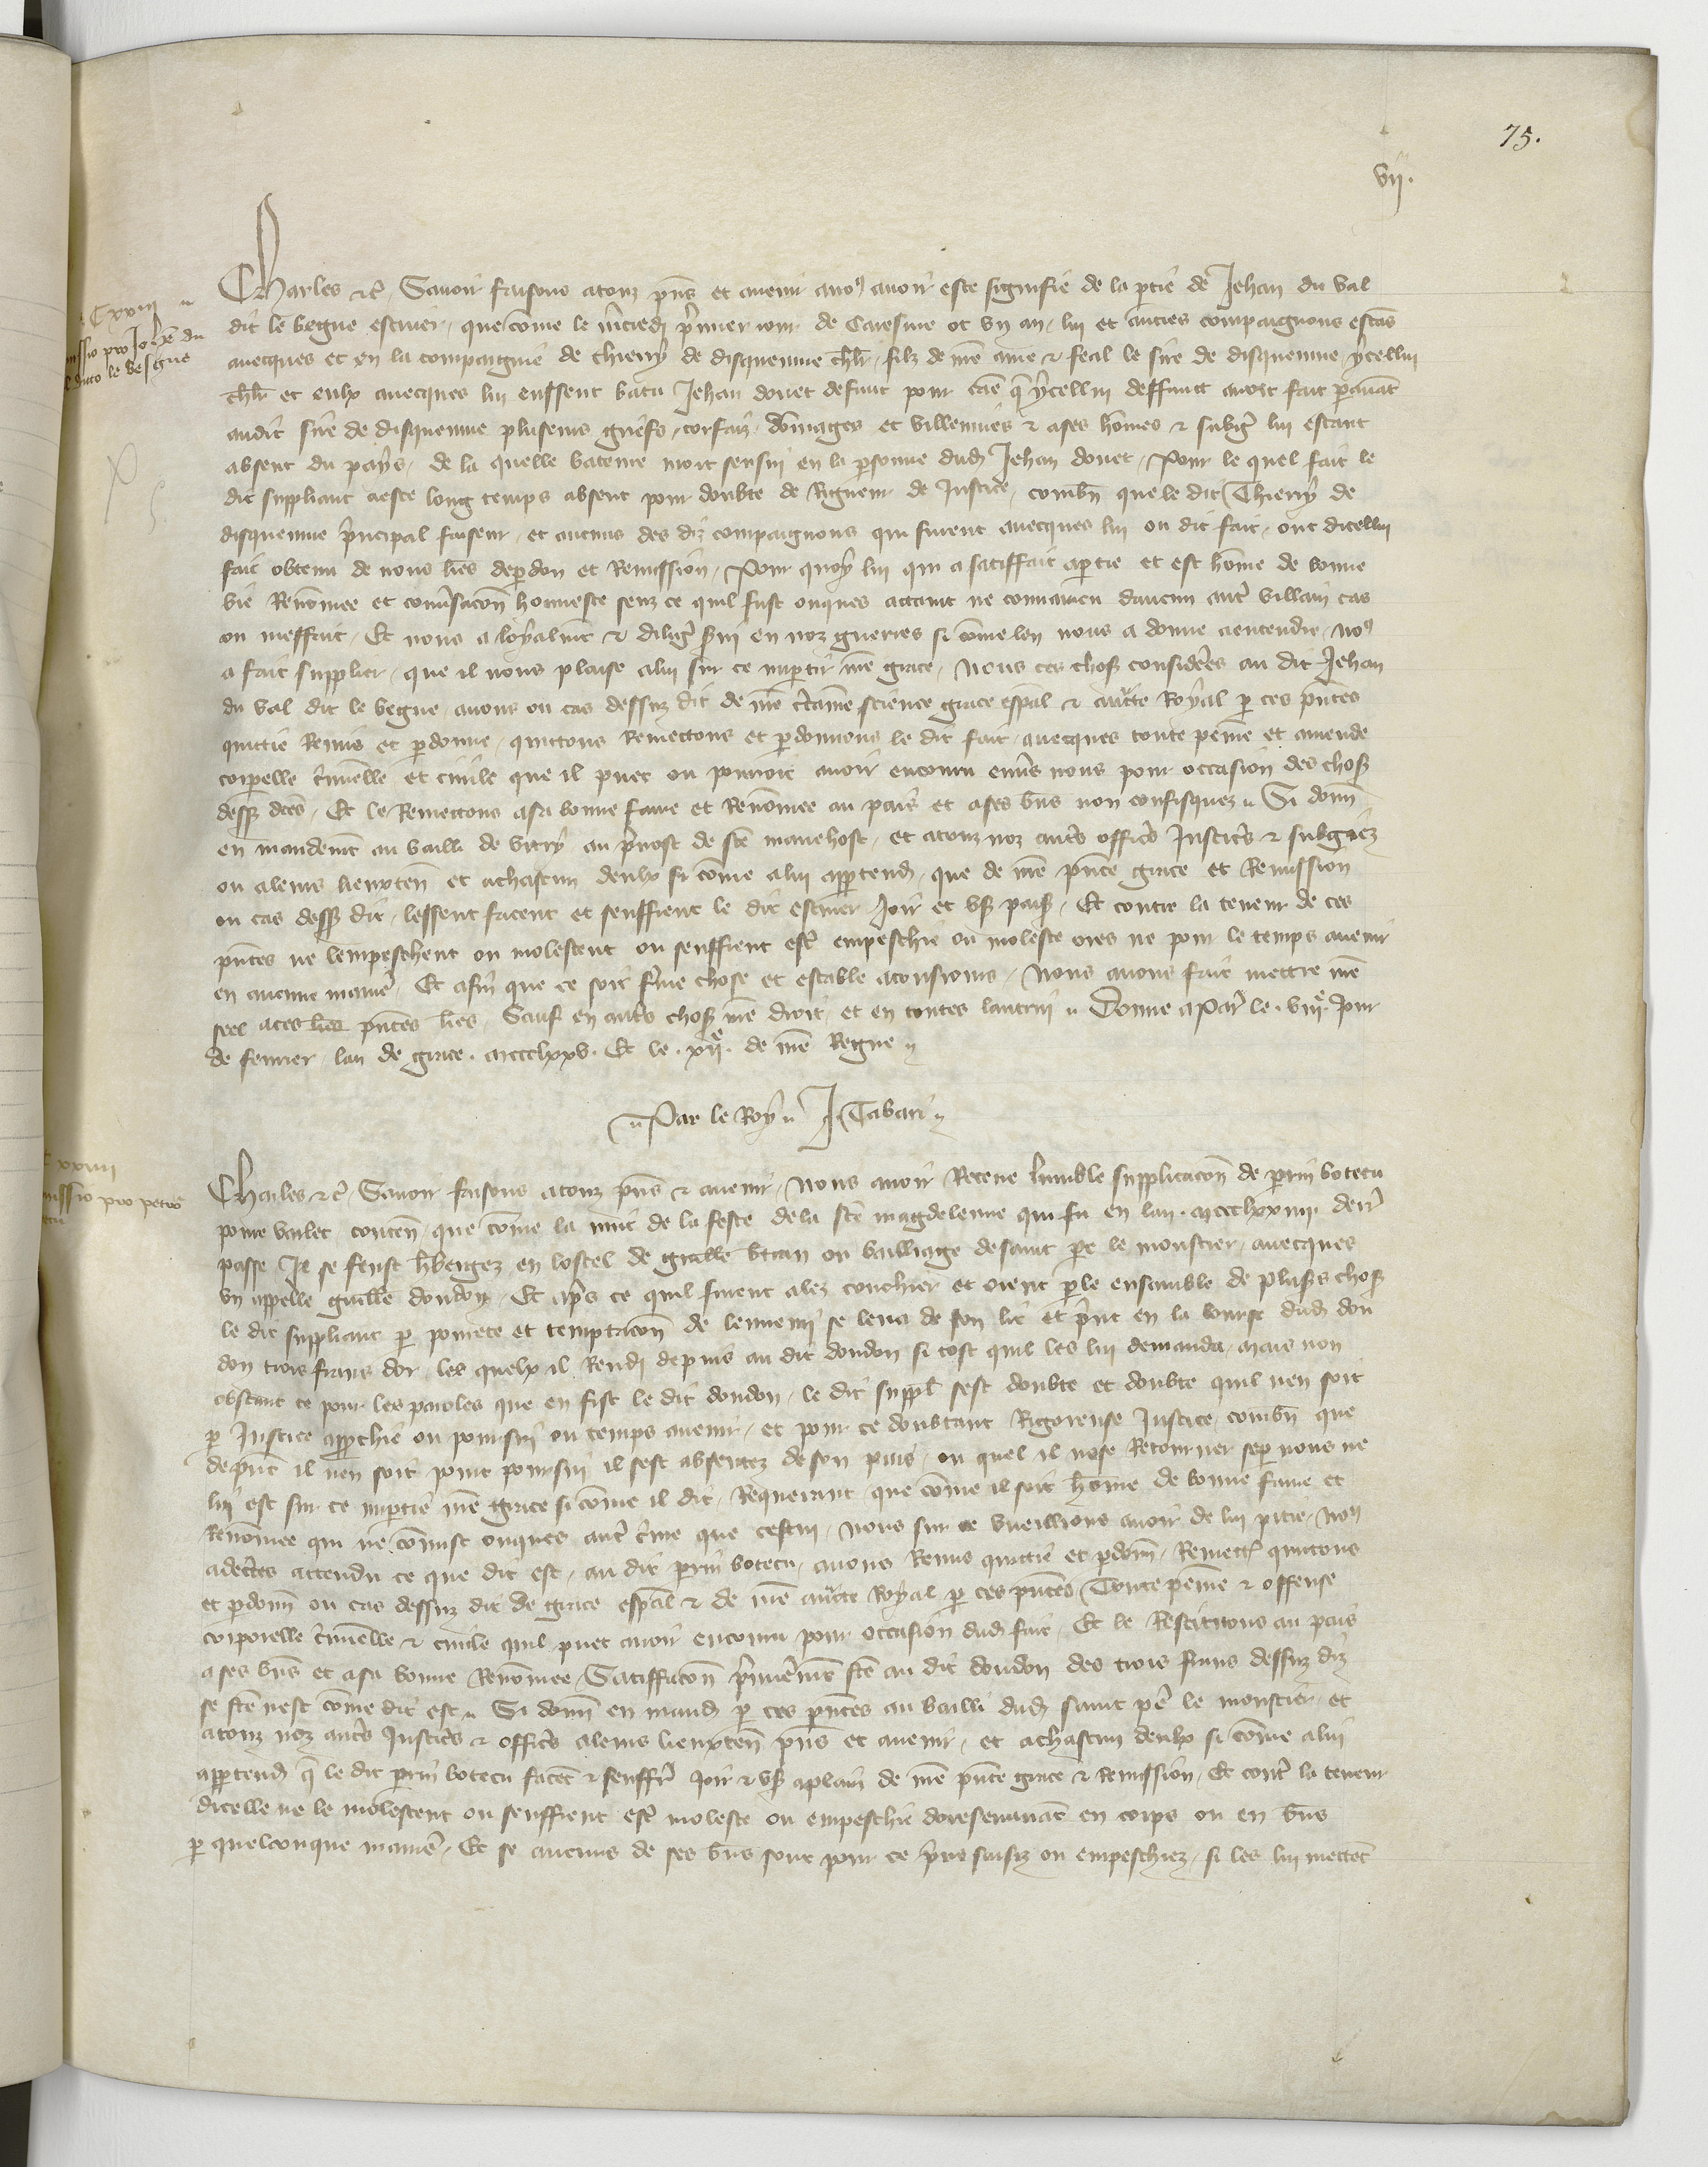 75.
vii.
Cxxiii
missio pro Johe du
val dicto le besgue
Charles etc. Savoir faisons a touz pns et avenir a nos avoir este signifie de la ptie de Jehan du Val
dit le begue escuier, que come le mcredi pmier jour de Caresme ot un an, lui et autres compaignons estas
avecques et en la compaignie de thierry de disquemue chlr, filz de nre ame & feal le sire de disquemue, ycellui
chlr et eulx avecques lui eussent batu Jehan douet defunt pour cae q ycellui deffunct avoit fait pavant
audit sire de disquemue pluseurs griefs, torfaiz, domages et villennies & a ses homes & subgez lui estant
absent du pays, de la quelle bateure mort sensui en la psonne dud Jehan douet, Pour le quel fait le
dit suppliant a este long temps absent pour doubte de Rigueur de Justice, combn que le dit Thierry de
disquemue pncipal faiseur, et aucuns des diz compaignons qui furent avecques lui ou dit fait, ont dicellui
fait obtenu de nous lres de pdon et Remission, Pour quoy lui qui a satiffait a ptie et est home de bonne
vie Renomee et convsacon honneste senz ce quil fust onques attaint ne convaincu daucun autre villain cas
ou meffait, Et nous a loyalmt & diligemt servi en noz guerres si come len nous a donne a entendre, nos
a fait supplier, que il nous plaise a lui sur ce impartir nre grace, Nous ces choses considerees au dit Jehan
du Val dit le begue, avons ou cas dessuz dit de nre ctaine science grace espal & auctte Royal p ces pntes
quittie Remis et pdonne, quittons Remettons et pdonnons le dit fait, avecques toute peine et amende
corpelle cminelle et civile que il puet ou pourroit avoir encouru envs nous pour occasion des choses
dess dces, Et le Remettons a sa bonne fame et Renomee au pais et a ses bns non confisquez. Si donn
en mandemt au bailli de vitry au pvost de ste manehost, et a touz noz autres offics Justics & subgiez
ou a leurs lieuxten et a chascun deulx si come a lui appartend, que de nre pnte grace et Remission
ou cas dess dit, lessent facent et seuffrent le dit escuier Joir et user paisiblemt, Et contre la teneur de ces
pntes ne lempeschent ou molestent ou seuffrent estre empeschie ou moleste ores ne pour le temps avenir
en aucune maniere, Et afin que ce soit ferme chose et estable a tousjours, Nous avons fait mettre nre
seel a ces pntes lres, Sauf en autres choses nre droit, et en toutes lautrui. Donne a Paris le. viiie. jour
de fevrier lan de grace. mccclxxv. Et le. xiie. de nre Regne
Par le Roy J Tabari
C xxiiii
missio pro petro
Charles etc. Savoir faisons a touz pns & avenir, Nous avoir Receue lumble supplicacon de prin botecu
povre varlet, conten, que come la nuit de la feste de la ste magdelenne qui fu en lan. mccclxxiiii. derr
passe Il se feust hbergez en lostel de guille ou bailliage de saint pre le monstier, avecques
un appelle guille doudon, Et apres ce quil furent alez couchier et orent parle ensamble de pluss choses
le dit suppliant p povrete et temptacon de lennemi se leva de son lit et print en la bourse dud dou
don trois frans dor, les quelx il Rendi depuis au dit doudon si tost quil les lui demanda, mais non
obstant ce pour les paroles que en fist le dit doudon, le dit suppl sest doubte et doubte quil nen soit
p Justice approchie ou poursui ou temps avenir, et pour ce doubtant Rigoreuse Justice, combn que
de pnt il nen soit point poursui il sest absentez de son pais, ou quel il nose Retourner se p nous ne
lui est sur ce impartie nre grace si come il dit, Requerant que come il soit home de bonne fame et
Renomee qui ne comist onques autre crime que cestui, nous sur ce vueillions avoir de lui pitie, Nos
adetes attendu ce que dit est, au dit prin botecu, avons Remis quittie et pdonn, Remett quittons
et pdonn ou cas dessuz dit de grace espal & de nre auctte Royal p ces pntes Toute peine & offense
corporelle cminelle & civile quil puet avoir encouru pour occasion dud fait, Et le Restituons au pais
a ses bns et a sa bonne Renomee, Satiffacon pmieremt fte au dit doudon des trois frans dessuz diz
se fte nest come dit est. Si donn en mand p ces pntes au bailli dud saint pe le monstier, et
a touz noz autres Justics & offics a leurs lieuxten pns et avenir, et a chascun deulx si come a lui
appartend q le dit prin botecu facet & seuffrent Joir & user a plain de nre pnte grace & Remission, Et contre la teneur
dicelle ne le molestent ou seuffrent estre moleste ou empeschie doresenavant en corps ou en bns
p quelconque maniere, Et se aucuns de ses bns sont pour ce prins saisiz ou empeschiez, si les lui mettet